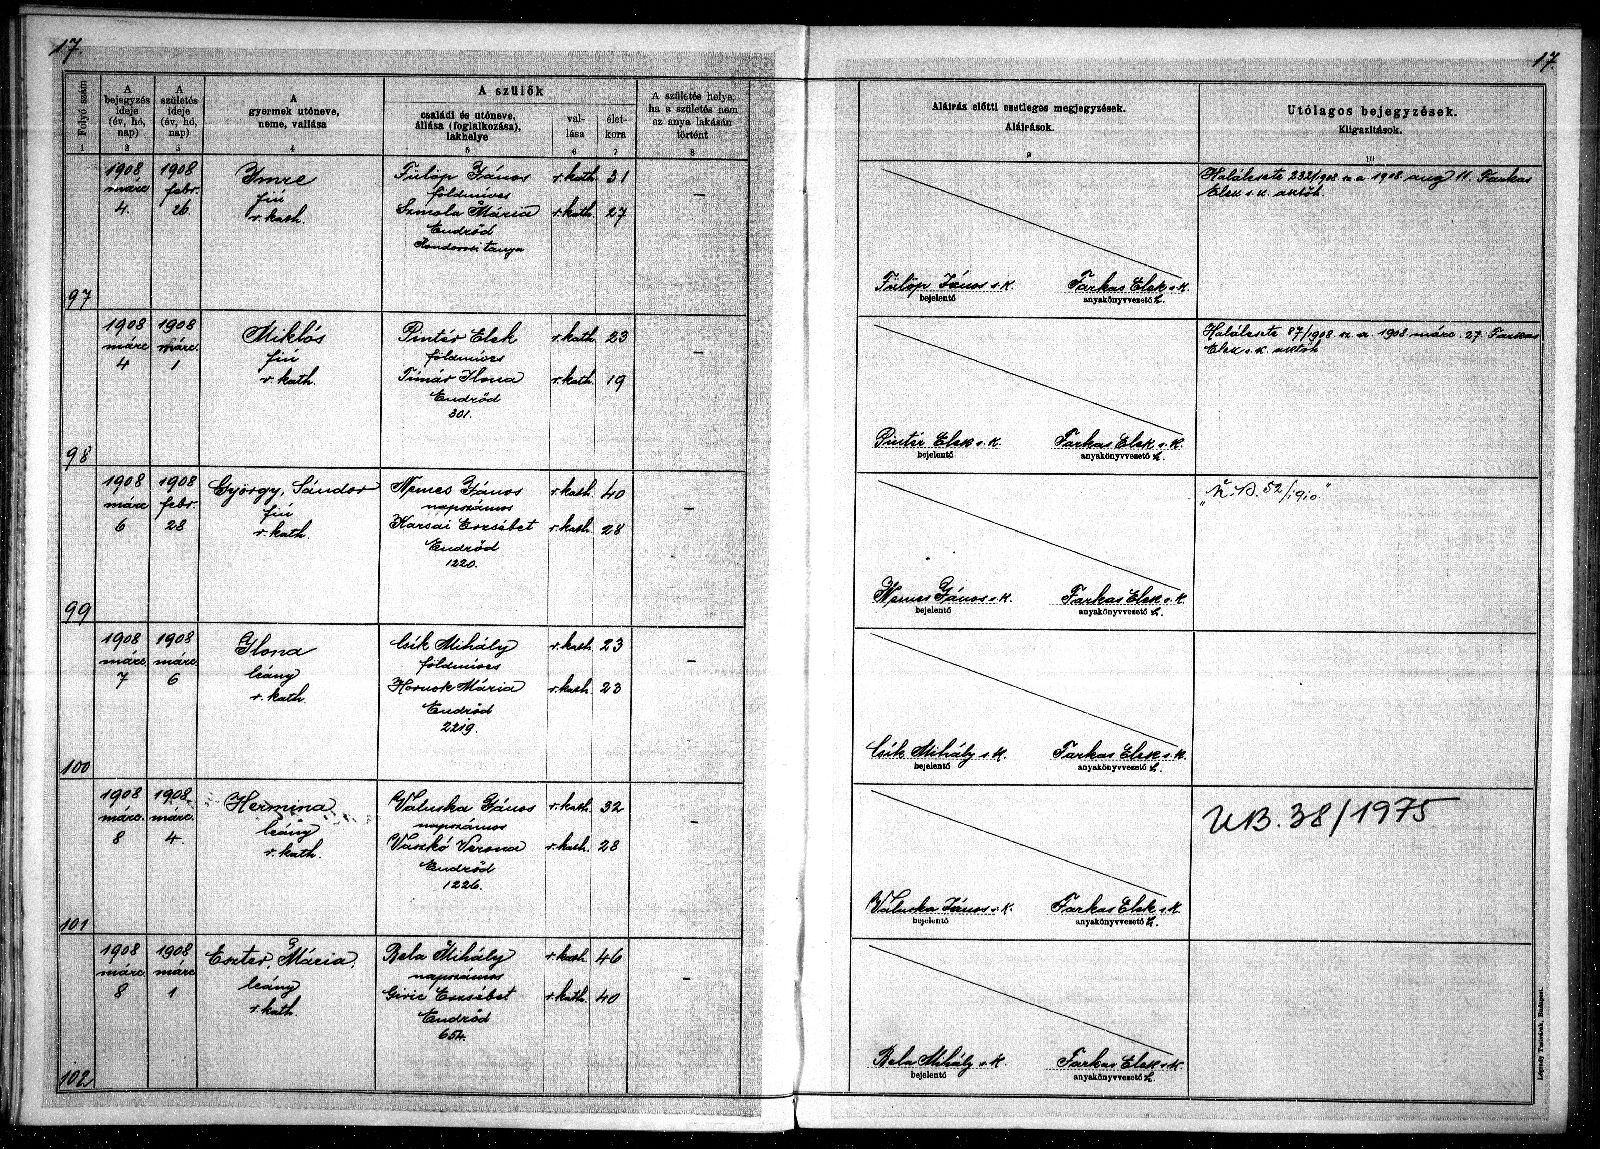 17.
17.
Folyó szám
A bejegyzés ideje (év, hó, nap)
A születés ideje (év, hó, nap)
A gyermek utóneve, neme, vallása
A szülők
családi és utóneve, állása (foglalkozása), lakhelye
vallása
életkora
A születés helye, ha a születés nem az anya lakásán történt
Aláírás előtti esetleges megjegyzések.
Aláírások.
Utólagos bejegyzések.
Kiigazítások.
1 2 3 4 5 6 7 8 9 10
97
1908 márc. 4.
1908 febr. 26.
Imre
fiú
r. kath.
Fülöp János r. kath. 31
földmíves
Szmola Mária r. kath. 27
Endrőd
Kondorosi tanya
–
Fülöp János s. k. Farkas Elek s. k.
bejelentő anyakönyvvezető h.
Halálesete 232/1908 sz. a 1908 aug 11. Farkas
Elek s. k. aktób
98
1908 márc 4
1908 márc. 1
Miklós
fiú
r. kath.
Pintér Elek r. kath. 23
földmíves
Timár Ilona r. kath. 19
Endrőd
301.
–
Pintér Elek s. k. Farkas Elek s. k.
bejelentő anyakönyvvezető h.
Halálesete 87/1908 sz. a 1908 márc. 27. Farkas
Elek s. k. aktób
99
1908 márc 6
1908 febr. 28
György, Sándor
fiú
r. kath.
Nemes János r. kath. 40
napszámos
Karsai Erzsébet r. kath. 28
Endrőd
1220.
–
Nemes János s. k. Farkas Elek s. k.
bejelentő anyakönyvvezető h.
52/1910"
100
1908 márc. 7
1908 márc. 6
Ilona
leány
r. kath.
Csík Mihály r. kath. 23
földmíves
Hornok Mária r. kath. 23
Endrőd
2219.
–
Csík Mihály s. k. Farkas Elek s. k.
bejelentő anyakönyvvezető h.
101
1908 márc. 8
1908 márc. 4.
Hermina
leány
r. kath.
Valuska János r. kath. 32
napszámos
Vaszkó Verona r. kath. 28
Endrőd
1226.
–
Valuska János s. k. Farkas Elek s. k.
bejelentő anyakönyvvezető h.
UB. 38/1975
102
1908 márc. 8
1908 márc. 1
Eszter, Mária,
leány
r. kath.
Bela Mihály r. kath. 46
napszámos
Giric Erzsébet r. kath. 40
Endrőd
654.
–
Bela Mihály s. k. Farkas Elek s. k.
bejelentő anyakönyvvezető h.
Légrády Testvérek, Budapest.